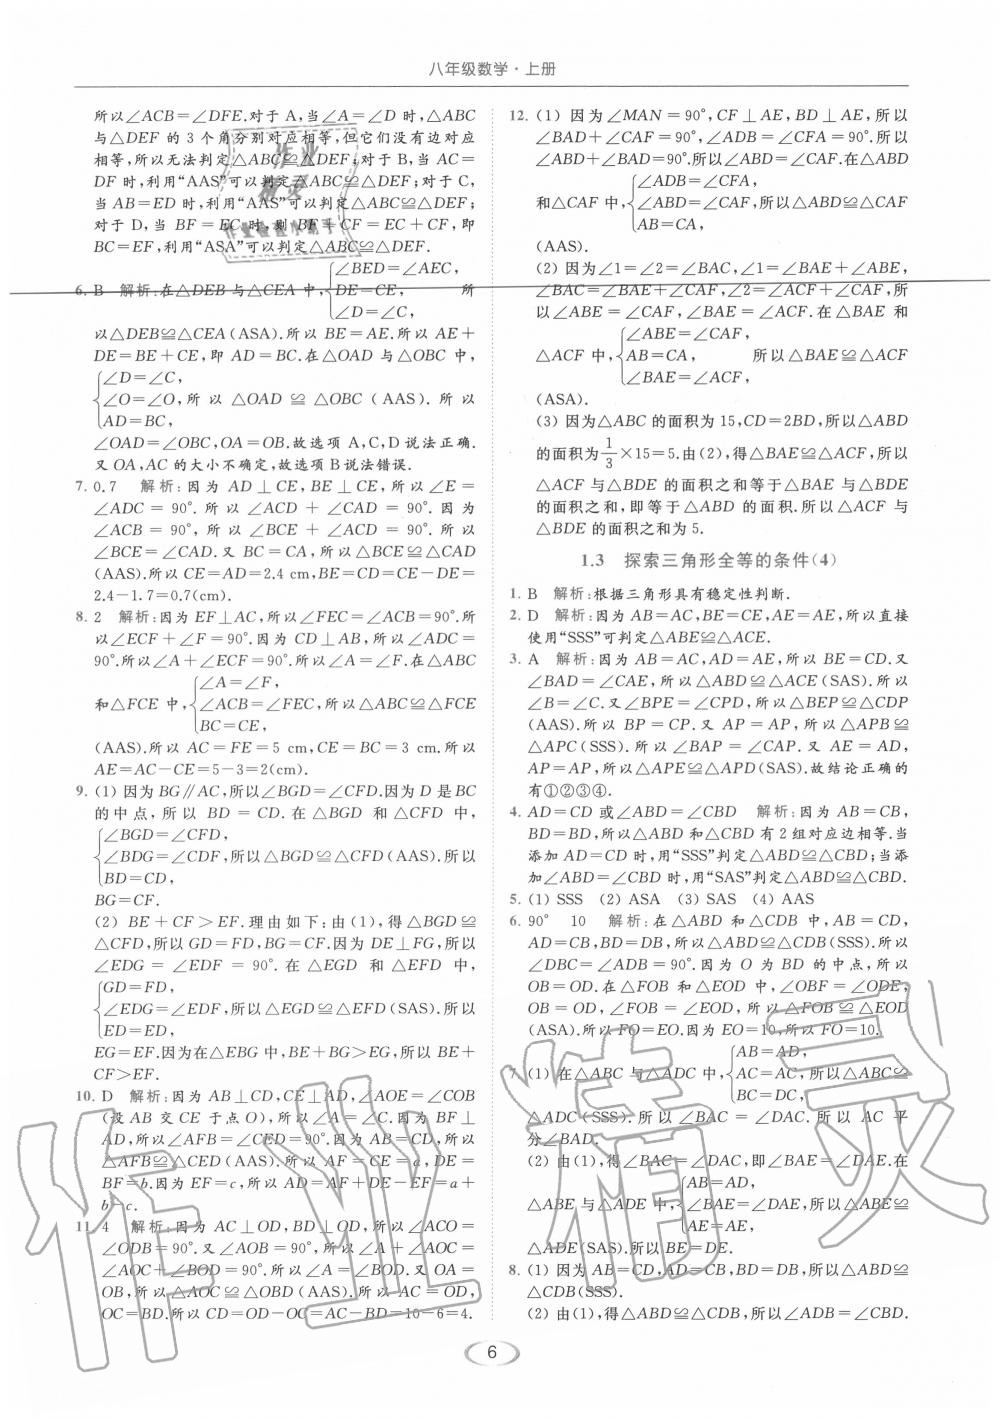 八年级数学·上册
所以∠ACB=∠DFE.对于A,当∠A=∠D时,△ABC
与△DEF的3个角分别对应相等,但它们没有边对应
相等,所以无法判定△ABC≌△DEF;对于B,当AC=
DF时,利用“AAS”可以判定△ABC≌△DEF;对于C,
当AB=ED时,利用“AAS”可以判定△ABC≌△DEF;
对于D,当BF=EC时,则BF+CF=EC+CF,即
BC=EF,利用“ASA”可以判定△ABC≌△DEF.
∠BED=∠AEC,
6. B 解析:在△DEB与△CEA中,DE=CE, 所
∠D=∠C,
以△DEB≌△CEA(ASA).所以BE=AE.所以AE+
DE=BE+CE,即AD=BC.在△OAD与△OBC中,
∠D=∠C,
∠O=∠O,所以△OAD≌△OBC(AAS).所以
AD=BC,
∠OAD=∠OBC,OA=OB.故选项A,C,D说法正确.
又OA,AC的大小不确定,故选项B说法错误.
7. 0.7 解析:因为AD⊥CE,BE⊥CE,所以∠E=
∠ADC=90°.所以∠ACD+∠CAD=90°.因为
∠ACB=90°,所以∠BCE+∠ACD=90°.所以
∠BCE=∠CAD.又BC=CA,所以△BCE≌△CAD
(AAS).所以CE=AD=2.4 cm,BE=CD=CE-DE=
2.4-1.7=0.7(cm).
8. 2 解析:因为EF⊥AC,所以∠FEC=∠ACB=90°.所
以∠ECF+∠F=90°.因为CD⊥AB,所以∠ADC=
90°.所以∠A+∠ECF=90°.所以∠A=∠F.在△ABC
∠A=∠F,
和△FCE中,∠ACB=∠FEC,所以△ABC≌△FCE
BC=CE,
(AAS).所以AC=FE=5 cm,CE=BC=3 cm.所以
AE=AC-CE=5-3=2(cm).
9. (1) 因为BG∥AC,所以∠BGD=∠CFD.因为D是BC
的中点,所以BD=CD.在△BGD和△CFD中,
∠BGD=∠CFD,
∠BDG=∠CDF,所以△BGD≌△CFD(AAS).所以
BD=CD,
BG=CF.
(2) BE+CF>EF.理由如下:由(1),得△BGD≌
△CFD,所以GD=FD,BG=CF.因为DE⊥FG,所以
∠EDG=∠EDF=90°.在△EGD和△EFD中,
GD=FD,
∠EDG=∠EDF,所以△EGD≌△EFD(SAS).所以
ED=ED,
EG=EF.因为在△EBG中,BE+BG>EG,所以BE+
CF>EF.
10. D 解析:因为AB⊥CD,CE⊥AD,∠AOE=∠COB
(设AB交CE于点O),所以∠A=∠C.因为BF⊥
AD,所以∠AFB=∠CED=90°.因为AB=CD,所以
△AFB≌△CED(AAS).所以AF=CE=a,DE=
BF=b.因为EF=c,所以AD=AF+DE-EF=a+
b-c.
11. 4 解析:因为AC⊥OD,BD⊥OD,所以∠ACO=
∠ODB=90°.又∠AOB=90°,所以∠A+∠AOC=
∠AOC+∠BOD=90°.所以∠A=∠BOD.又OA=
OB,所以△AOC≌△OBD(AAS).所以AC=OD,
OC=BD.所以CD=OD-OC=AC-BD=10-6=4.
12. (1) 因为∠MAN=90°,CF⊥AE,BD⊥AE,所以
∠BAD+∠CAF=90°,∠ADB=∠CFA=90°.所以
∠ABD+∠BAD=90°.所以∠ABD=∠CAF.在△ABD
∠ADB=∠CFA,
和△CAF中,∠ABD=∠CAF,所以△ABD≌△CAF
AB=CA,
(AAS).
(2) 因为∠1=∠2=∠BAC,∠1=∠BAE+∠ABE,
∠BAC=∠BAE+∠CAF,∠2=∠ACF+∠CAF,所
以∠ABE=∠CAF,∠BAE=∠ACF.在△BAE和
∠ABE=∠CAF,
△ACF中,AB=CA, 所以△BAE≌△ACF
∠BAE=∠ACF,
(ASA).
(3) 因为△ABC的面积为15,CD=2BD,所以△ABD
的面积为1/3×15=5.由(2),得△BAE≌△ACF,所以
△ACF与△BDE的面积之和等于△BAE与△BDE
的面积之和,即等于△ABD的面积.所以△ACF与
△BDE的面积之和为5.
1.3 探索三角形全等的条件(4)
1. B 解析:根据三角形具有稳定性判断.
2. D 解析:因为AB=AC,BE=CE,AE=AE,所以直接
使用“SSS”可判定△ABE≌△ACE.
3. A 解析:因为AB=AC,AD=AE,所以BE=CD.又
∠BAD=∠CAE,所以△ABD≌△ACE(SAS).所以
∠B=∠C.又∠BPE=∠CPD,所以△BEP≌△CDP
(AAS).所以BP=CP.又AP=AP,所以△APB≌
△APC(SSS).所以∠BAP=∠CAP.又AE=AD,
AP=AP,所以△APE≌△APD(SAS).故结论正确的
有①②③④.
4. AD=CD或∠ABD=∠CBD 解析:因为AB=CB,
BD=BD,所以△ABD和△CBD有2组对应边相等.当
添加AD=CD时,用“SSS”判定△ABD≌△CBD;当添
加∠ABD=∠CBD时,用“SAS”判定△ABD≌△CBD.
5. (1) SSS (2) ASA (3) SAS (4) AAS
6. 90° 10 解析:在△ABD和△CDB中,AB=CD,
AD=CB,BD=DB,所以△ABD≌△CDB(SSS).所以
∠DBC=∠ADB=90°.因为O为BD的中点,所以
OB=OD.在△FOB和△EOD中,∠OBF=∠ODE,
OB=OD,∠FOB=∠EOD,所以△FOB≌△EOD
(ASA).所以FO=EO.因为EO=10,所以FO=10.
AB=AD,
7. (1) 在△ABC与△ADC中,AC=AC,所以△ABC≌
BC=DC,
△ADC(SSS).所以∠BAC=∠DAC.所以AC平
分∠BAD.
(2) 由(1),得∠BAC=∠DAC,即∠BAE=∠DAE.在
AB=AD,
△ABE与△ADE中,∠BAE=∠DAE,所以△ABE≌
AE=AE,
△ADE(SAS).所以BE=DE.
8. (1) 因为AB=CD,AD=CB,BD=DB,所以△ABD≌
△CDB(SSS).
(2) 由(1),得△ABD≌△CDB,所以∠ADB=∠CBD.
6
作业精灵